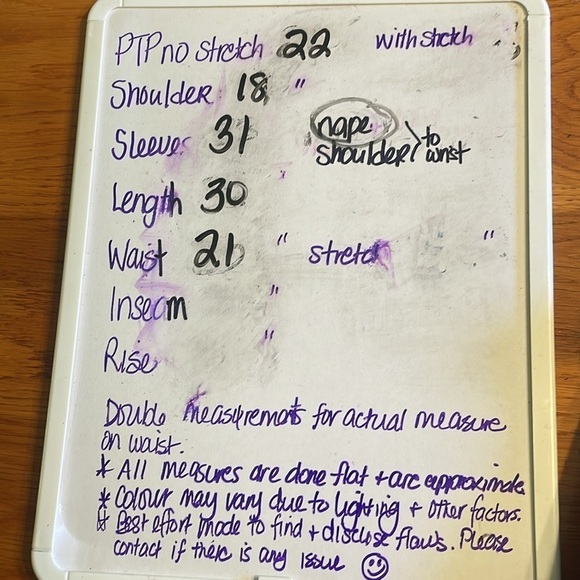 PTP no stretch 22 with stretch "
Shoulder 18 "
Sleeve 31 nape shoulder / to wrist
Length 30 "
Waist 21 " stretch "
Inseam "
Rise "
Double measurements for actual measure
on waist.
* All measures are done flat + are approximate
* Colour may vary due to lighting + other factors.
* Best effort made to find + disclose flaws. Please
contact if there is any issue ☺